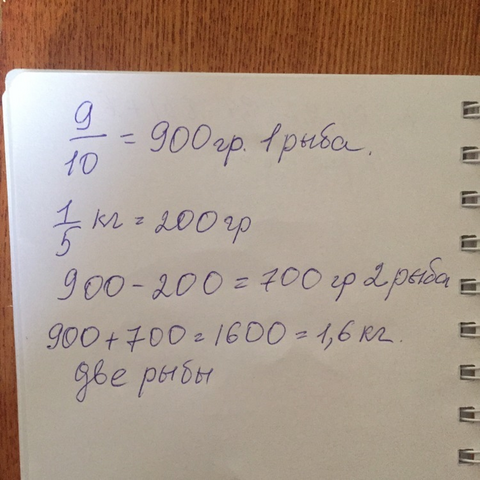 9/10 = 900 гр. 1 рыба.
1/5 кг = 200 гр
900 - 200 = 700 гр 2 рыба
900 + 700 = 1600 = 1,6 кг.
две рыбы